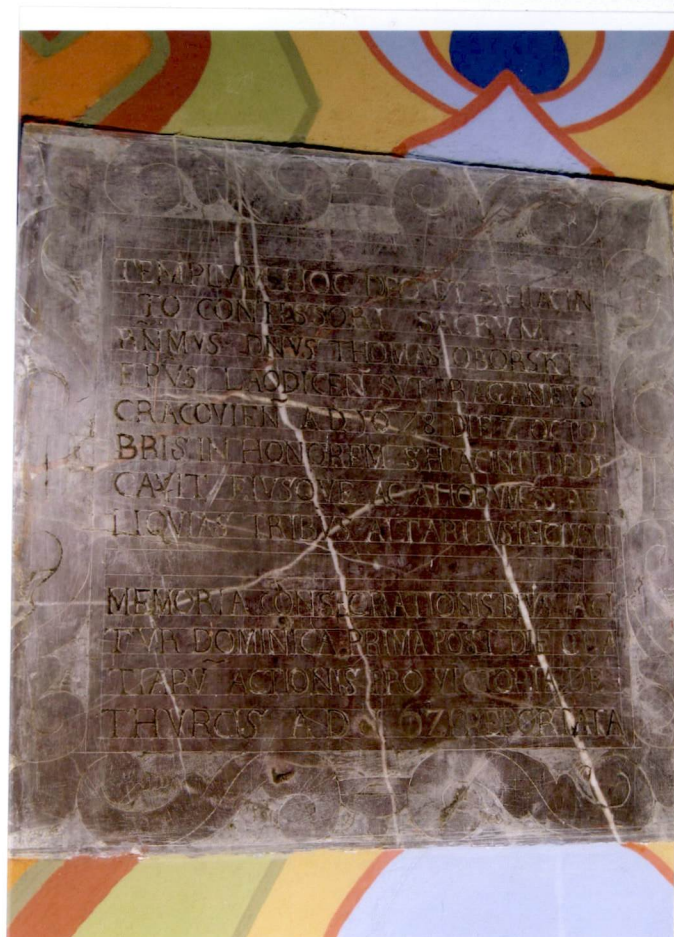 TEMPLVM HOC DEO, ET S. HIACIN
TO CONFESSORI SACRVM
RÑMVS DÑVS THOMAS OBORSKI
EPVS LAODICEÑ SVFFRAGANEVS
CRACOVIEÑ A D DIE OCTO
BRIS IN HONOREM S HIACINTI DEDI
CAVIT EIVSQVE AC ALIORVM
LIQVIAS TRIBVS ALTARIBVS
MEMORIA CONSECRATIONIS EIVS AGI
TVR DOMINICA PRIMA POST DIE GRA
TIARṼ ACTIONIS PRO VICTORIA DE
THVRCIS A D REPORTATA